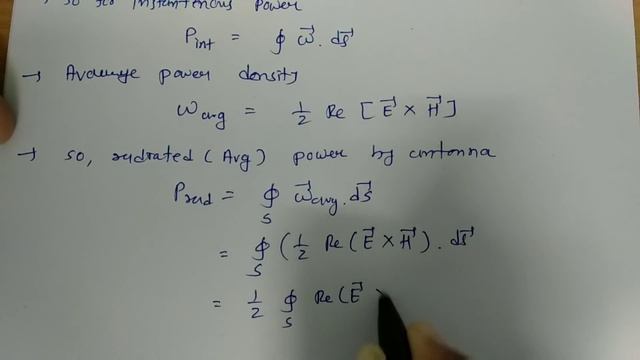 so for instantenous power
P_int = ∮ w⃗ . ds⃗
→ Avarage power density
W_avg = 1/2 Re [E⃗ × H⃗]
→ so, radiated (Avg) power by antenna
P_rad = ∮_S w⃗_avg . ds⃗
= ∮_S (1/2 Re (E⃗ × H⃗) . ds⃗
= 1/2 ∮_S Re (E⃗ ×